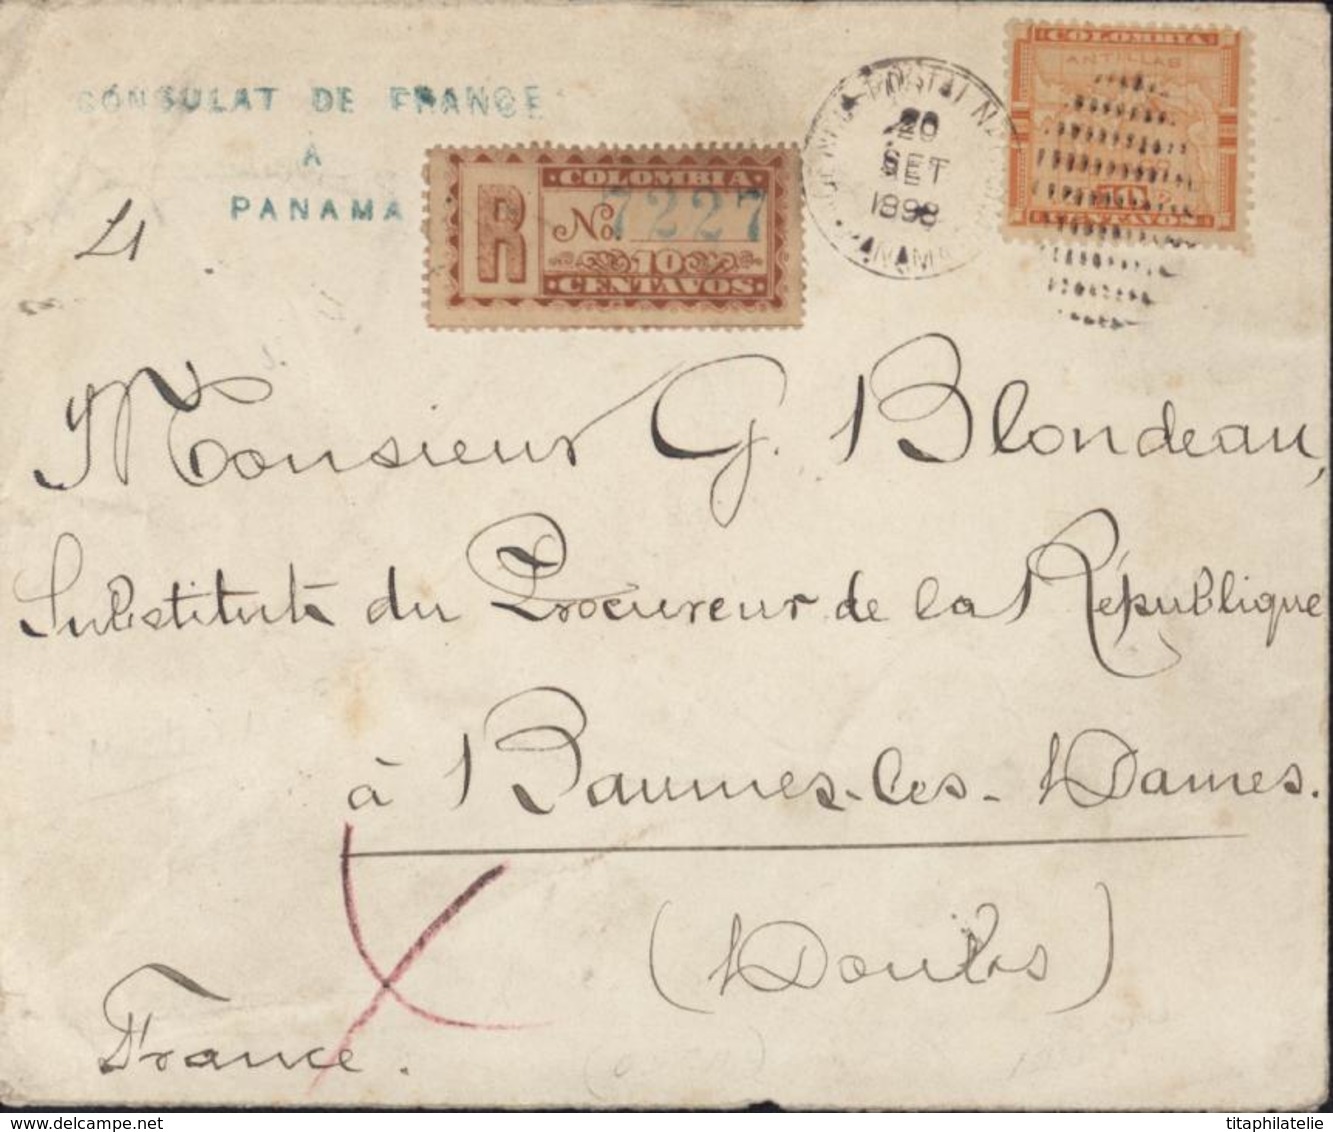 CONSULAT DE FRANCE
A
PANAMA
R
COLOMBIA
No. 7227
10
CENTAVOS
POSTAL
20
SET
1898
PANAMA
COLOMBIA
ANTILLAS
CENTAVOS
Monsieur G. Blondeau,
Substitut du Procureur de la République
à Baumes-les-Dames.
(Doubs)
France.
titaphilatelie